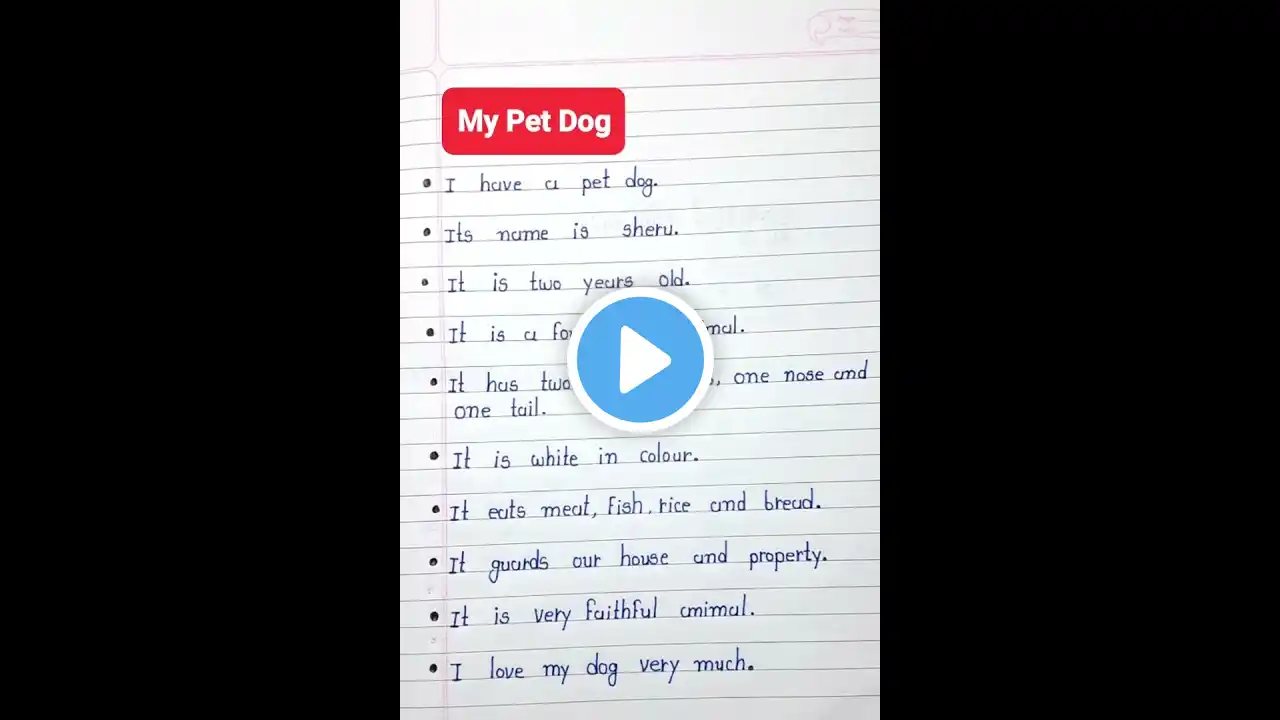 My Pet Dog
• I have a pet dog.
• Its name is sheru.
• It is two years old.
• It is a
• It has two , one nose and
one tail.
• It is white in colour.
• It eats meat, fish, rice and bread.
• It guards our house and property.
• It is very faithful animal.
• I love my dog very much.